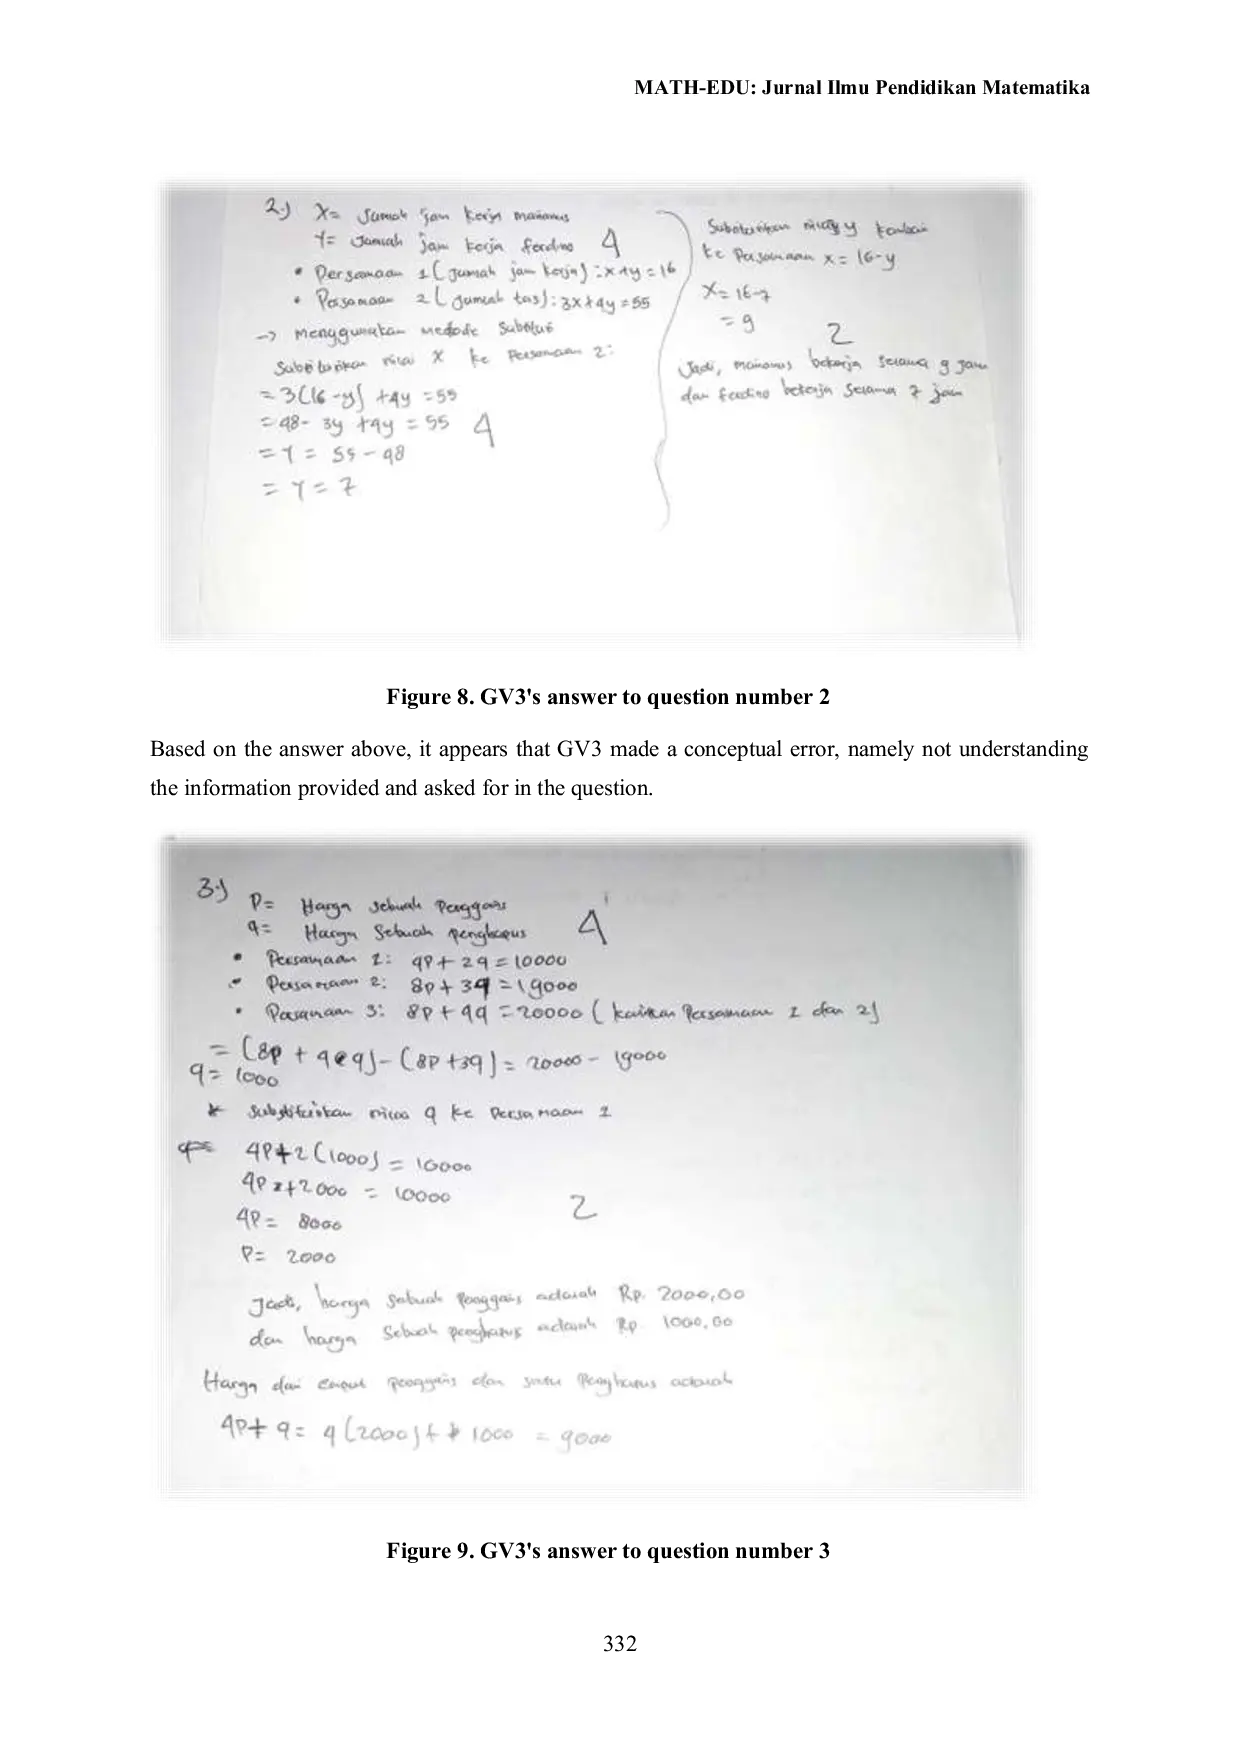 MATH-EDU: Jurnal Ilmu Pendidikan Matematika
2.) X= Jumlah jam kerja
Y= Jumlah jam kerja 4
• Persamaan 1 (jumlah jam kerja) : x+y = 16
• Persamaan 2 (jumlah tas) : 3x+4y = 55
-> menggunakan metode
nilai X ke Persamaan 2:
= 3(16-y) + 4y = 55
= 48- 3y +4y = 55 4
= Y = 55 - 48
= Y = 7
nilai y
ke Persamaan x = 16-y
X= 16-7
= 9
2
Jadi, bekerja selama 9 jam
dan bekerja selama 7 jam
Figure 8. GV3's answer to question number 2
Based on the answer above, it appears that GV3 made a conceptual error, namely not understanding
the information provided and asked for in the question.
3.) P= Harga sebuah
q= Harga Sebuah penghapus 4
• Persamaan 1: 4P+ 2q = 10000
• Persamaan 2: 8p + 3q = 19000
• Persamaan 3: 8P + 4q = 20000 ( Persamaan 1 dan 2)
= (8p + 4q) - (8P +3q) = 20000 - 19000
q= 1000
* nilai q ke Persamaan 1
4P+2 (1000) = 10000
4P +2000 = 10000
2
4P = 8000
P= 2000
Jadi, harga sebuah adalah Rp. 2000,00
dan harga Sebuah adalah Rp. 1000,00
Harga dari empat dan satu penghapus adalah
4P+ q = 4 (2000) + 1000 = 9000
Figure 9. GV3's answer to question number 3
332